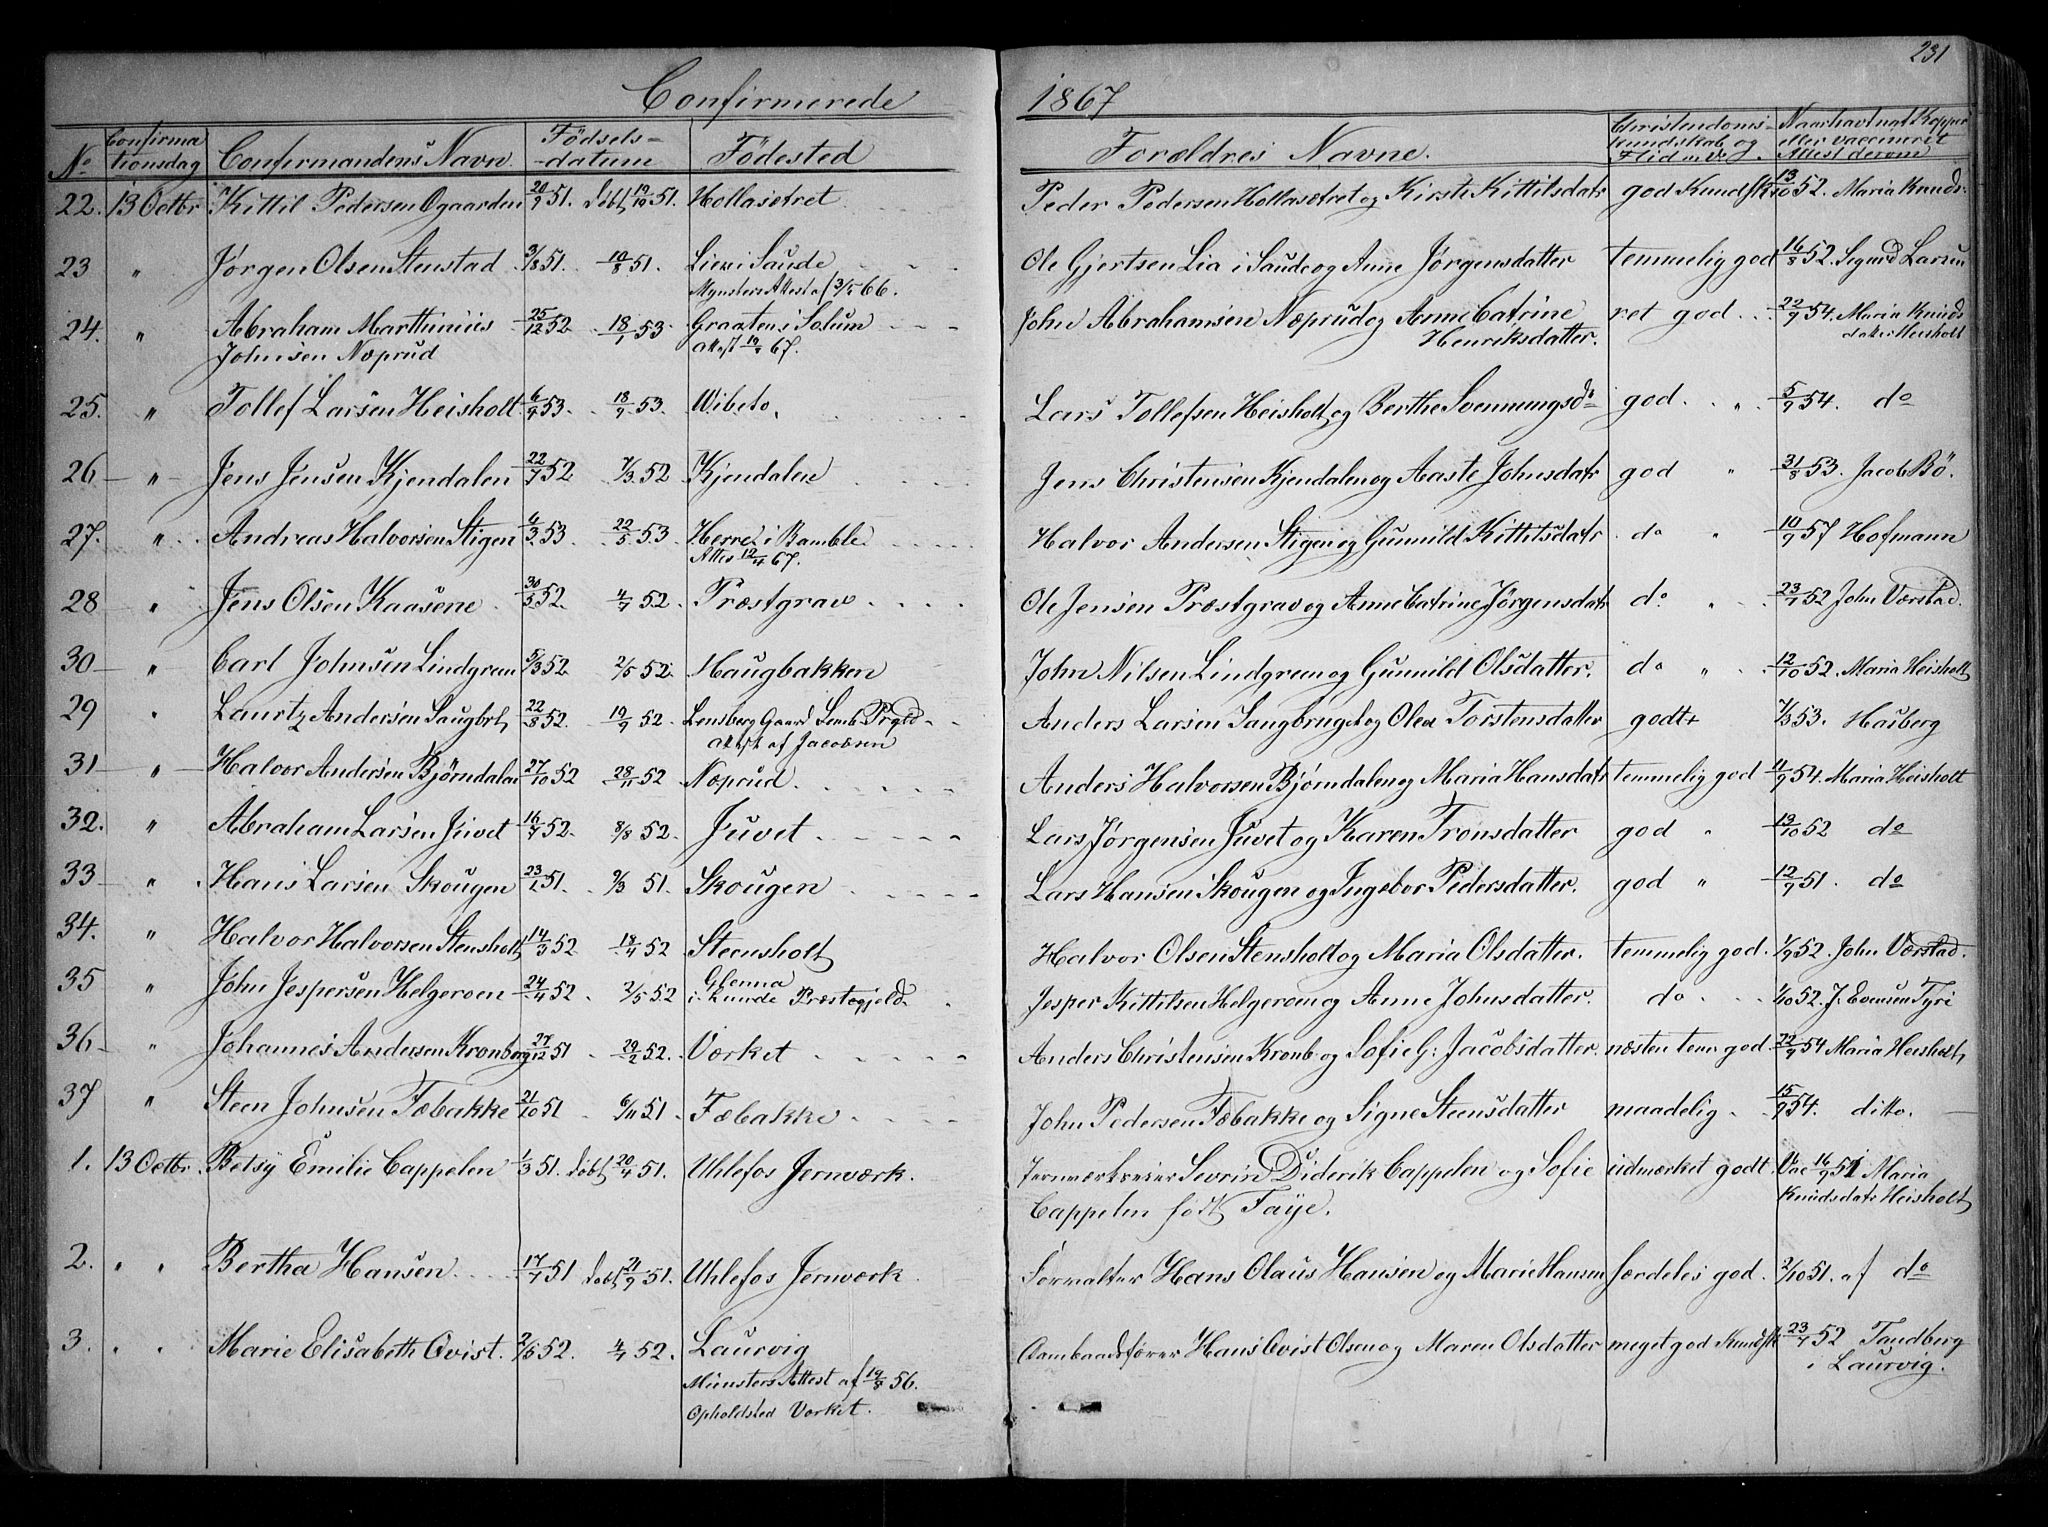 231
Confirmerede 1867
No Confirmationsdag Confirmandens Navn Födsels-datum Födested Forældres Navne. Christendoms-kundskab og Flid m.v. Naar havt nat. Kopper eller vaccineret Attest derom
22. 13 Octbr. Kittil Pedersen Ogaarden 20/9 51. döbt 19/10 51. Hollasætret Peder Pedersen Hollasætret og Kirsti Kittilsdatr god Kundsk. 13/10 52. Maria Knuds-
23 " Jørgen Olsen Stenstad 3/8 51. 10/8 51. Lien i Saude Ole Gjertsen Lia i Saude og Anne Jørgensdatter temmelig god 16/8 52. Sigurd Larsen
Mynsters Attest af 3/5 66.
24. " Abraham Marthinius 25/12 52. 18/1 53. Graaten i Solum John Abrahamsen Næprud og Anne Catrine ret god 22/9 54. Maria Knuds
Johnsen Næprud Attest 67. Henriksdatter. datter Heisholt
25. " Tollef Larsen Heisholt 6/9 53. 18/9 53. Wibeto. Lars Tollefsen Heisholt og Berthe Svennungsdr god. " 5/9 54. do
26 " Jens Jensen Kjendalen 22/7 52 7/3 52 Kjendalen Jens Christensen Kjendalen og Aaste Johnsdatr god " 31/8 53. Jacob Bö.
27. " Andreas Halvorsen Stigen 6/3 53 22/5 53. Herre i Bamble. Halvor Andersen Stigen og Gunnild Kittilsdatr. do " 10/9 57 Hofmann
Attes 12/4 67.
28 " Jens Olsen Kaasene 30/5 52. 4/7 52. Præstgrav Ole Jensen Præstgrav og Anne Catrine Jørgensdatr do " 23/7 52 John Værstad.
30 " Carl Johnsen Lindgreen 5/3 52 2/5 52. Haugbakken John Nilsen Lindgreen og Gunnild Olsdatter. do " 12/10 52. Maria Heisholt
29 " Laurtz Andersen Saugbrt 22/8 52. 19/9 52. Lensberg Gaard Anders Larsen Saugbruget og Olea Torstensdatter godt+ 7/3 53. Hasberg
Attest af Jacobsen
31 " Halvor Andersen Björndalen 27/10 52 28/11 52 Næprud. Anders Halvorsen Björndalen og Maria Hansdatr temmelig god 11/9 54. Maria Heisholt
32. " Abraham Larsen Juvet 16/7 52. 8/8 52. Juvet Lars Jørgensen Juvet og Karen Tronsdatter god " 13/10 52 do
33 " Hans Larsen Skougen 23/1 51. 9/3 51. Skougen Lars Hansen Skougen og Ingebor Pedersdatter. god " 12/9 51. do
34. " Halvor Halvorsen Stensholt 14/3 52 18/4 52 Steensholt Halvor Olsen Stensholt og Maria Olsdatter. temmelig god. 1/9 52. John Værstad.
35 " John Jespersen Helgeroen 24/4 52. 2/5 52 Glenna Jesper Kittilsen Helgeroen og Anne Johnsdatter. do 1/10 52. J. Evensen Tyri
i Lunde Præstegjeld.
36 " Johannes Andersen Kronberg 27/12 51 29/2 52. Værket Anders Christensen Kronb og Sofie G: Jacobsdatter. næsten tem god. 22/9 54 Maria Heisholt,
37 " Steen Johnsen Fæbakke 21/10 51 6/11 51. Fæbakke John Pedersen Fæbakke og Signe Steensdatter maadelig 15/9 54. ditto.
1. 13 Octbr. Betsy Emilie Cappelen 1/3 51. döbt 20/4 51. Uhlefos Jernværk. Jernværkseier Severin Diderik Cappelen og Sofie udmærket godt. Vac 16/9 51 Maria
Cappelen født Faye. Knudsdatr Heisholt
2. " " Bertha Hansen 17/7 51 döbt 21/9 51. Uhlefos Jernværk. Forvalter Hans Olaus Hansen og Marie Hansen særdeles god. 2/10 51. af do
3. " " Marie Elisabeth Qvist. 2/6 52. 4/7 52. Laurvig Hans Qvist Olsen og Maren Olsdatter meget god Kundsk 23/7 52 Tandberg
Münsters Attest af 19/8 56. i Laurvig.
Opholdsted Værket.